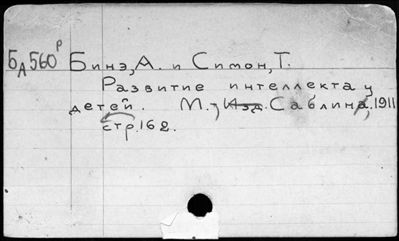 БА560р Бинэ, А. и Симон, Т.
Развитие интеллекта у
детей. М., Изд. Саблина, 1911
стр. 162.